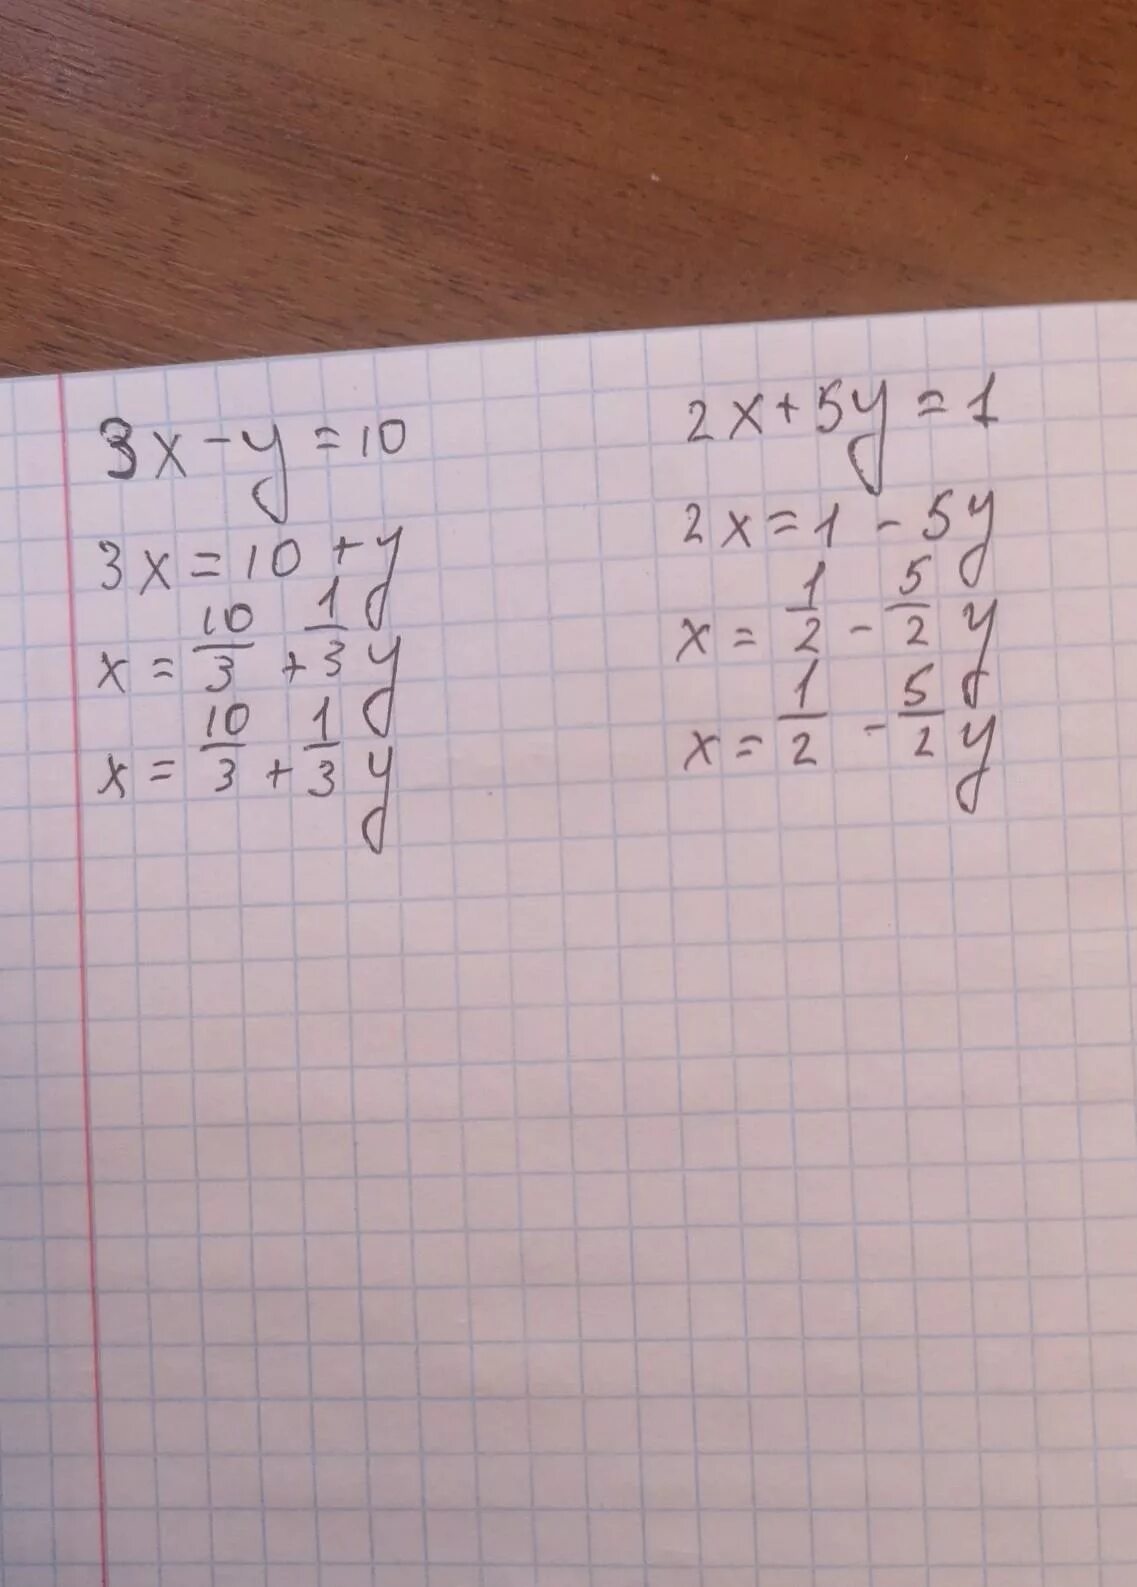 3x - y = 10
3x = 10 + y
x = 10/3 + 1/3 y
x = 10/3 + 1/3 y
2x + 5y = 1
2x = 1 - 5y
x = 1/2 - 5/2 y
x = 1/2 - 5/2 y